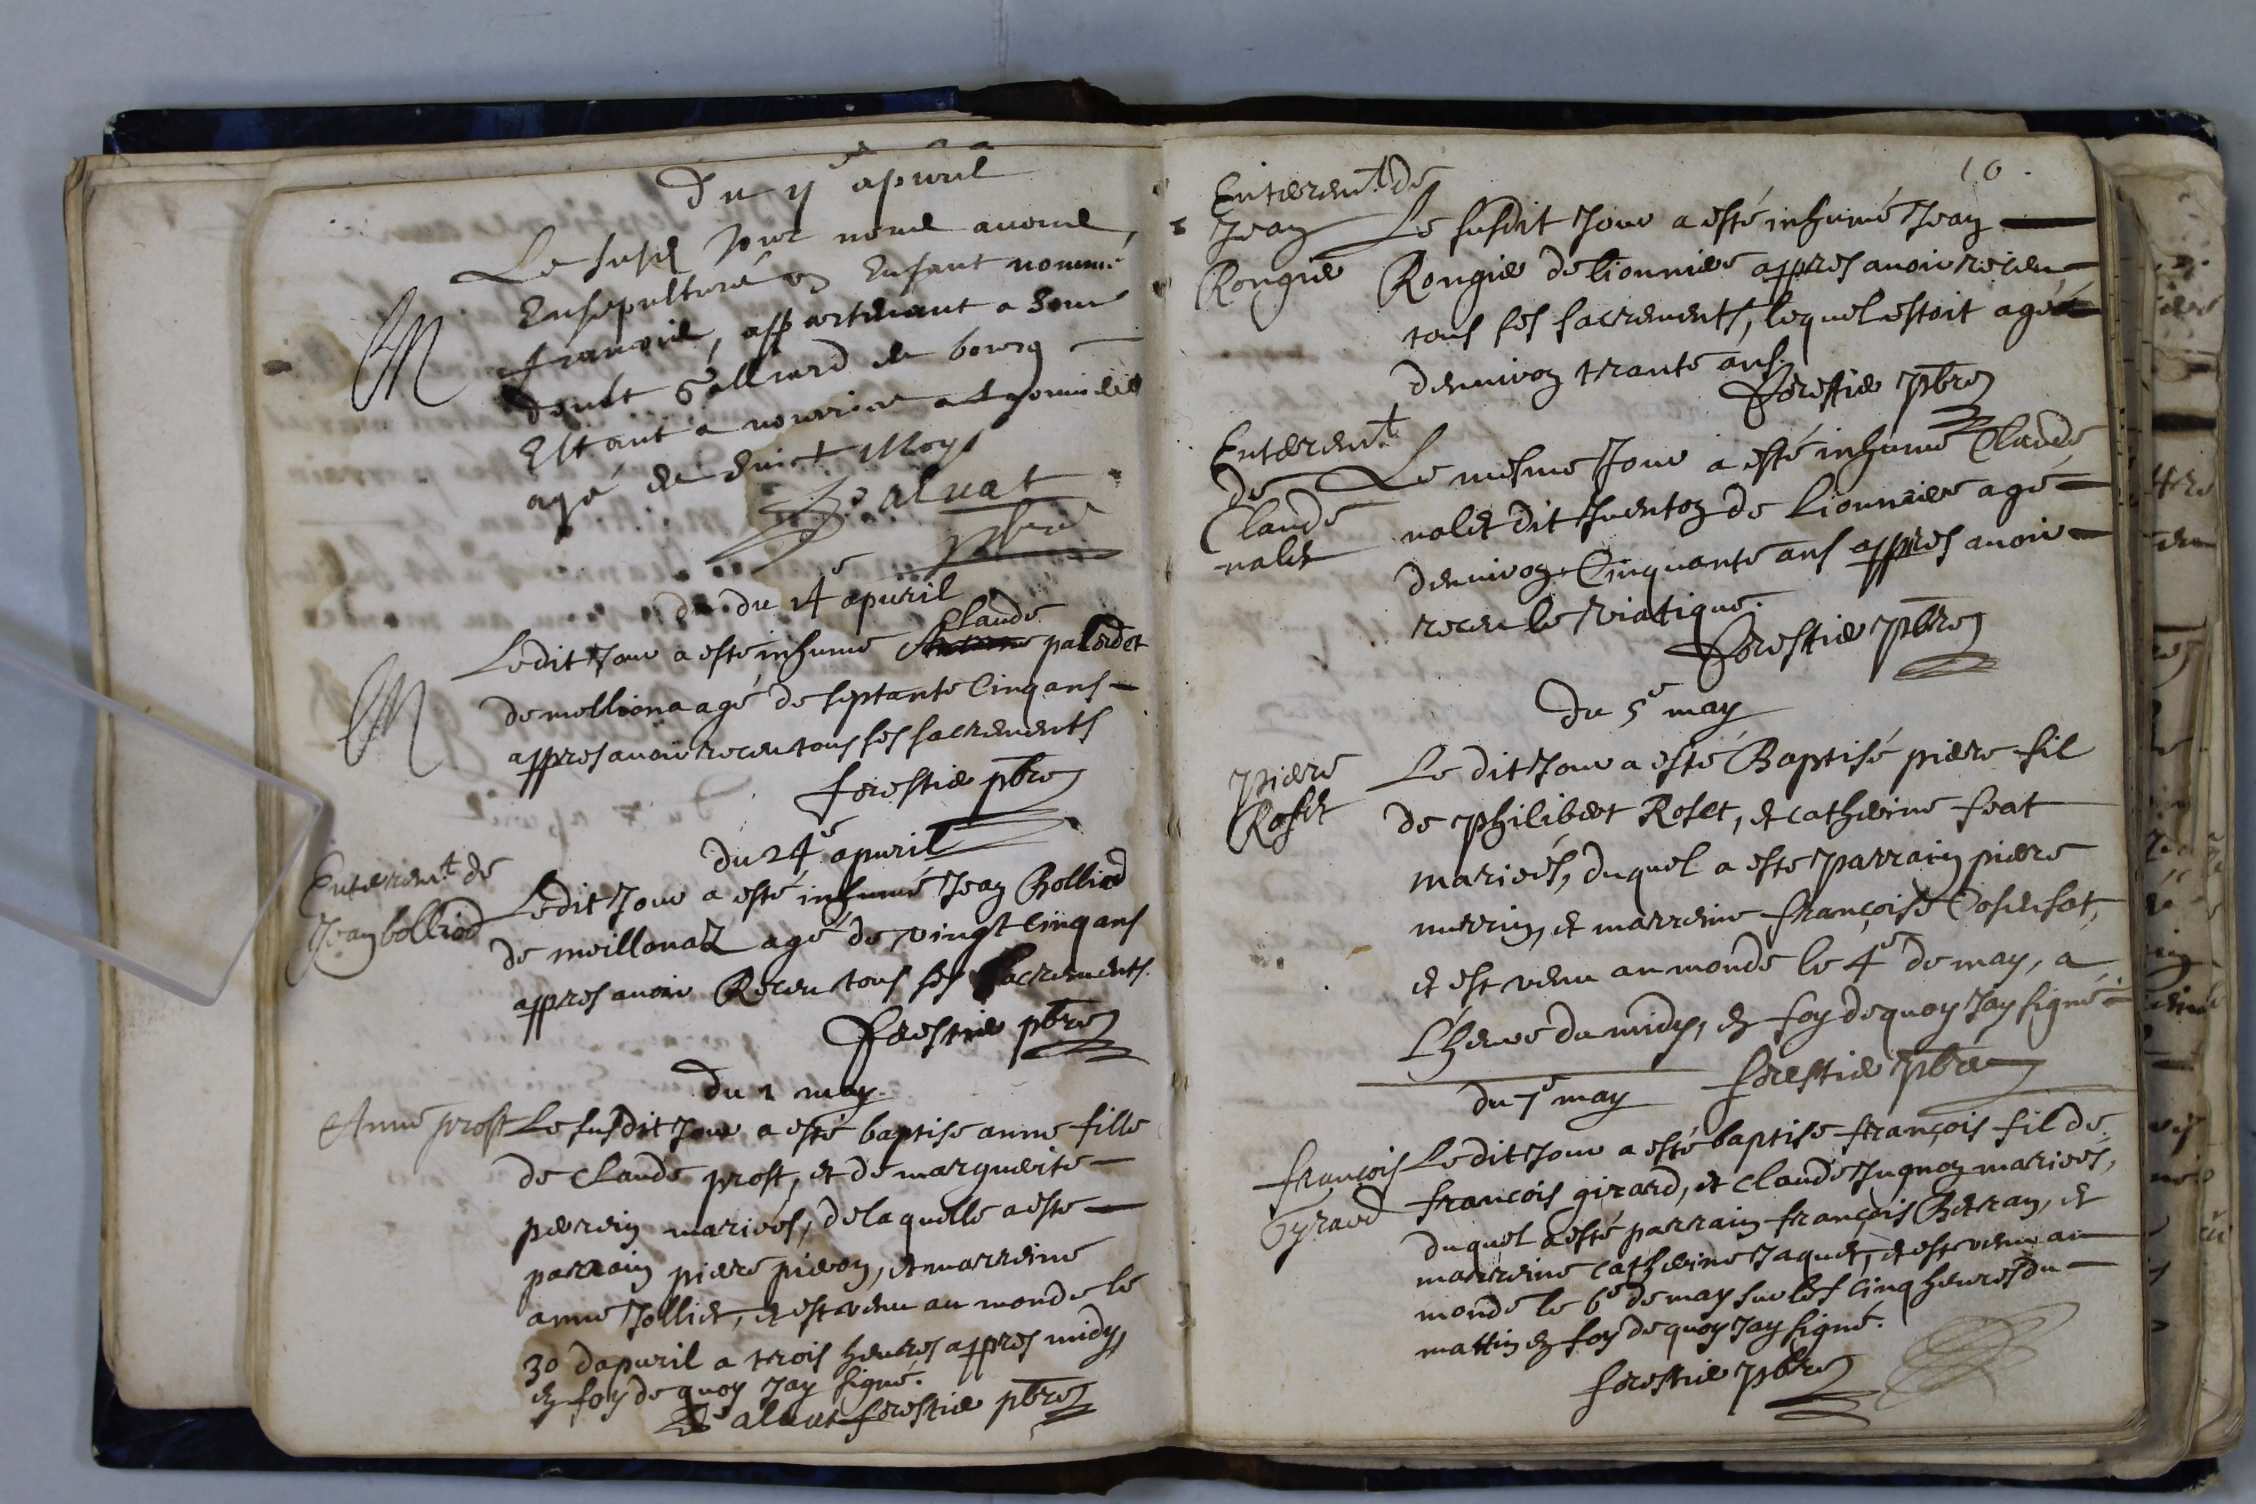 Du 11e apuril
Le susd Jour nous auons
Ensepulturé un Enfant nommé
francois, appartenant a
Galliard de bourg
Estant a nourrice a Lyonnieres
agé de huict Moys
Daluat
pbre
du 14e apuril
Claude
Ledit Jour a esté inhumé Antoine paLordet
de melliona agé de septante Cinq ans
appres auoir receu tous ses sacrements
forestier pbre
du 24e apuril
Enterremt de
Jean bolliod
Ledit Jour a esté inhumé Jean Bolliod
de meillonaz agé de vingt cinq ans
appres auoir Receu tous ses sacrements.
Forestier pbre
du 1 may.
Anne prost
Le susdit Jour a esté baptise anne fille
de Claude prost, et de marguerite
perrin mariées, de laquelle a este
parrain piere pieron, et marreine
anne Jolliet, et est venu au monde le
30 dapuril a trois heures appres midy,
en foy de quoy Jay signé.
Daluat forestier pbre
10.
Enterremt de
Jean
Rongier
Le susdit Jour a esté inhumé Jean
Rongier de lionniere appres auoir receu
tous ses sacrements, lequel estoit agé
denuiron trante ans.
Forestier pbre
Enterremt
de
Claude
nalet
Le mesme Jour a esté inhumé Claude
nalet dit Juenton de Lionniere agé
denuiron Cinquante ans appres auoir
receu le Viatique.
Forestier pbre
du 5e may
Piere
Roset
Le dit Jour a esté Baptisé piere fil
de Philibert Roset, et catherine feat
mariées, duquel a este Parrain piere
murrin, et marreine françoise Cosensat,
et est venu au monde le 4e de may, a
L'heure du midy, en foy de quoy Jay signé
forestier pbre
du 7e may
françois
Gyrard
Ledit Jour a esté baptise françois fil de
françois girard, et claude Jugnon mariées,
duquel a esté parrain françois Betran, et
marreine catherine Jaquet, et est venu au
monde le 6e de may sur les cinq heures du
mattin en foy de quoy Jay signé.
forestier pbre